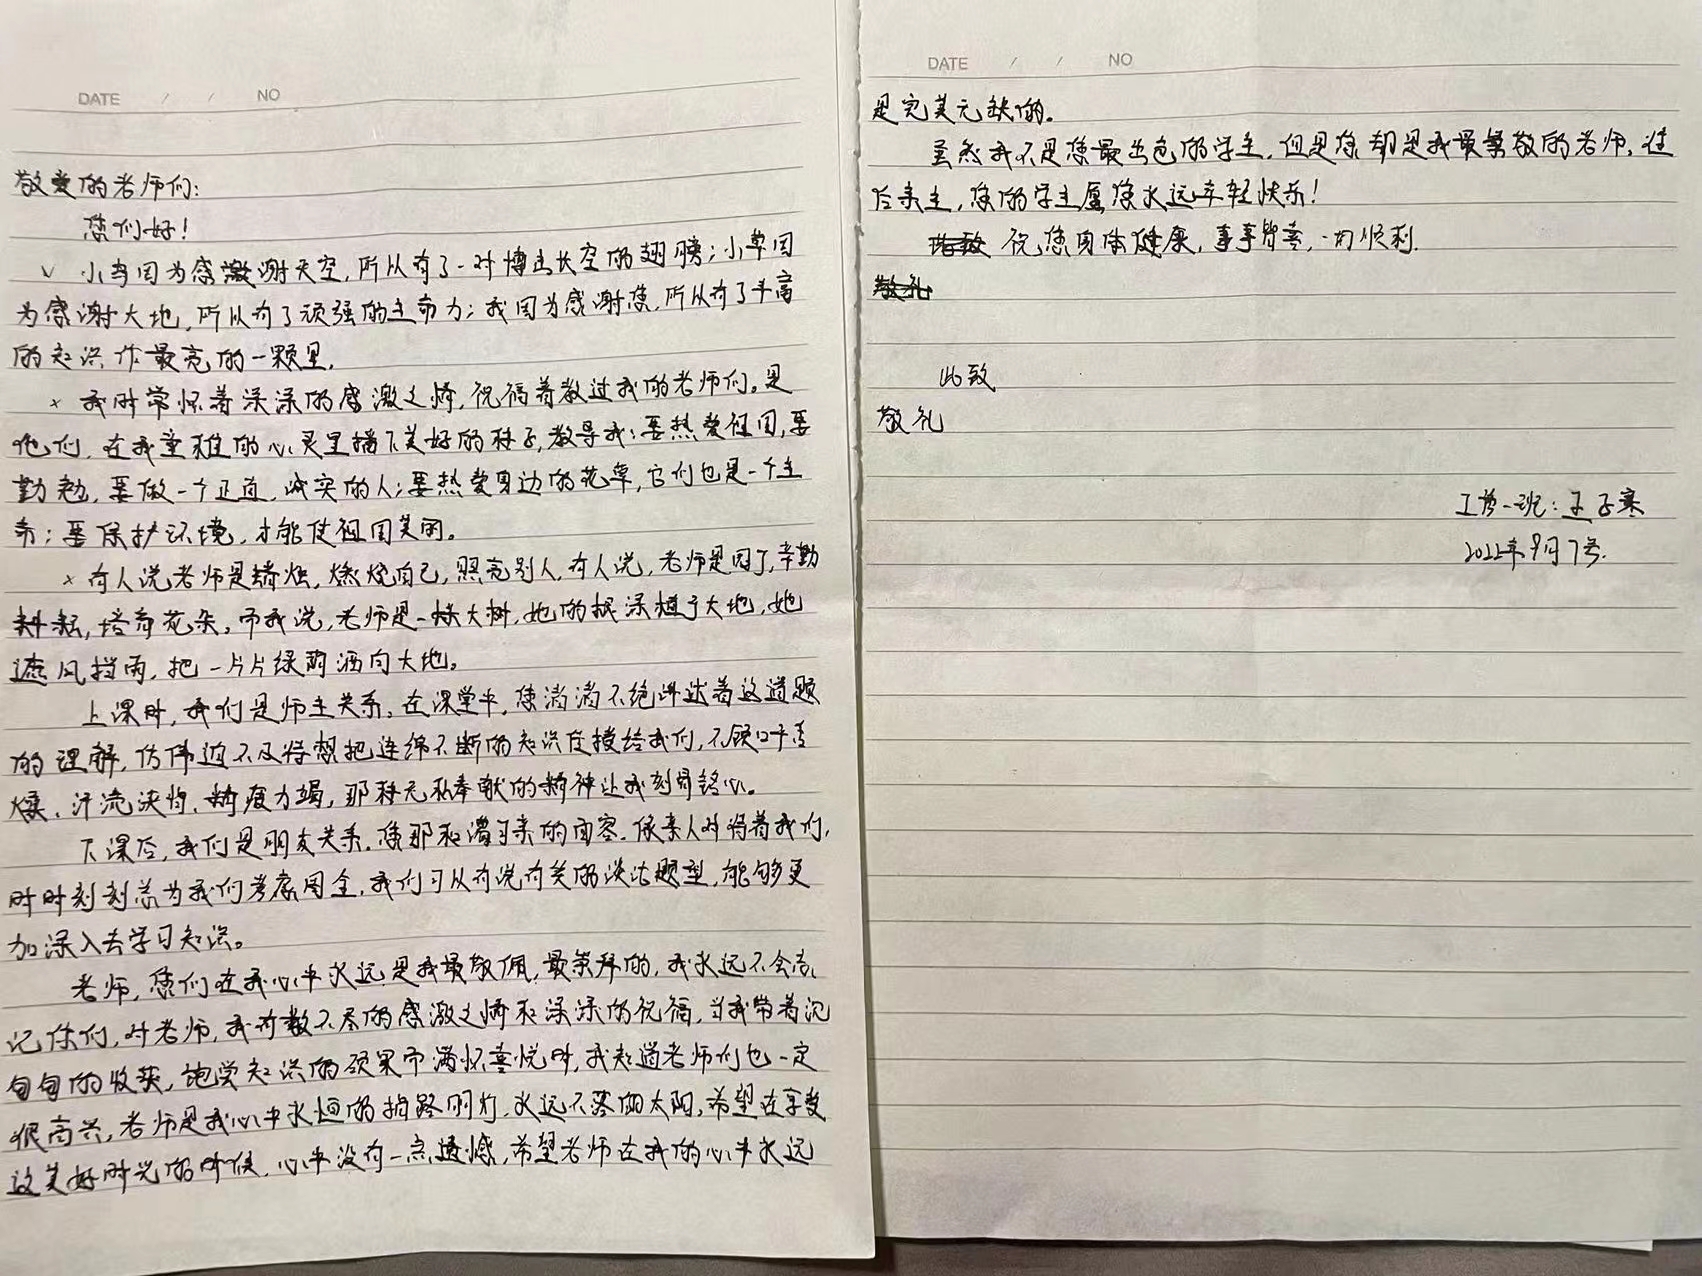 DATE / / NO
敬爱的老师们:
您们好!
∨ 小鸟因为感激谢天空,所以有了一对博击长空的翅膀;小草因
为感谢大地,所以有了顽强的生命力;我因为感谢您,所以有了丰富
的知识作最亮的一颗星.
× 我时常怀着深深的感激之情,祝福着教过我的老师们。是
他们,在我童稚的心灵里播下美好的种子,教导我:要热爱祖国,要
勤勉,要做一个正直,诚实的人;要热爱身边的花草,它们也是一个生
命;要保护环境,才能使祖国美丽。
× 有人说老师是蜡烛,燃烧自己,照亮别人,有人说,老师是园丁,辛勤
耕耘,培育花朵,而我说,老师是一棵大树,她的根深植于大地,她
遮风挡雨,把一片片绿荫洒向大地。
上课时,我们是师生关系,在课堂中,您滔滔不绝讲述着这道题
的理解,仿佛迫不及待想把连绵不断的知识传授给我们,不顾口干舌
燥、汗流浃背、精疲力竭,那种无私奉献的精神让我刻骨铭心。
下课后,我们是朋友关系.您那和蔼可亲的面容.像亲人对待着我们,
时时刻刻总为我们考虑周全,我们可以有说有笑的谈论题型,能够更
加深入去学习知识。
老师,您们在我心中永远是我最敬佩,最崇拜的,我永远不会忘
记你们,对老师,我有数不尽的感激之情和深深的祝福,当我带着沉
甸甸的收获,饱尝知识的硕果而满怀喜悦时,我知道老师们也一定
很高兴,老师是我心中永恒的指路明灯,永远不落的太阳,希望在享受
这美好时光的时候,心中没有一点遗憾,希望老师在我的心中永远
DATE / / NO
是完美无缺的。
虽然我不是您最出色的学生,但是您却是我最崇敬的老师,往
后余生,您的学生愿您永远年轻快乐!
祝,您身体健康,事事皆意,一切顺利.
敬礼
此致
敬礼
工管一班:王子寒
2022年9月7号.